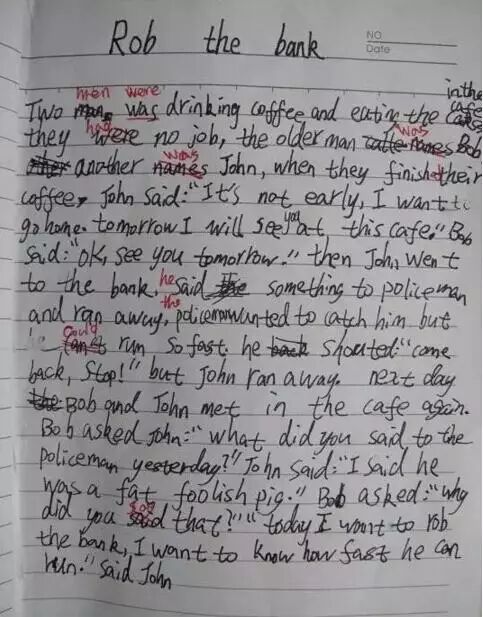 NO
Date
Rob the bank
men were in the
Two was drinking coffee and eating the cafe
had was
they were no job, the older man names Bob
was
another names John, when they finished their
coffee, John said: "It's not early, I want to
you
go home. tomorrow I will see at this cafe." Bob
said: "OK, see you tomorrow." then John went
he
to the bank, said something to policeman
the
and ran away, policeman wanted to catch him but
could
he run so fast. he shouted: "come
back, Stop!" but John ran away. next day
Bob and John met in the cafe again.
Bob asked John: "what did you said to the
policeman yesterday?" John said: "I said he
was a fat foolish pig." Bob asked: "why
say
did you said that?" "today I want to rob
the bank, I want to know how fast he can
run." said John